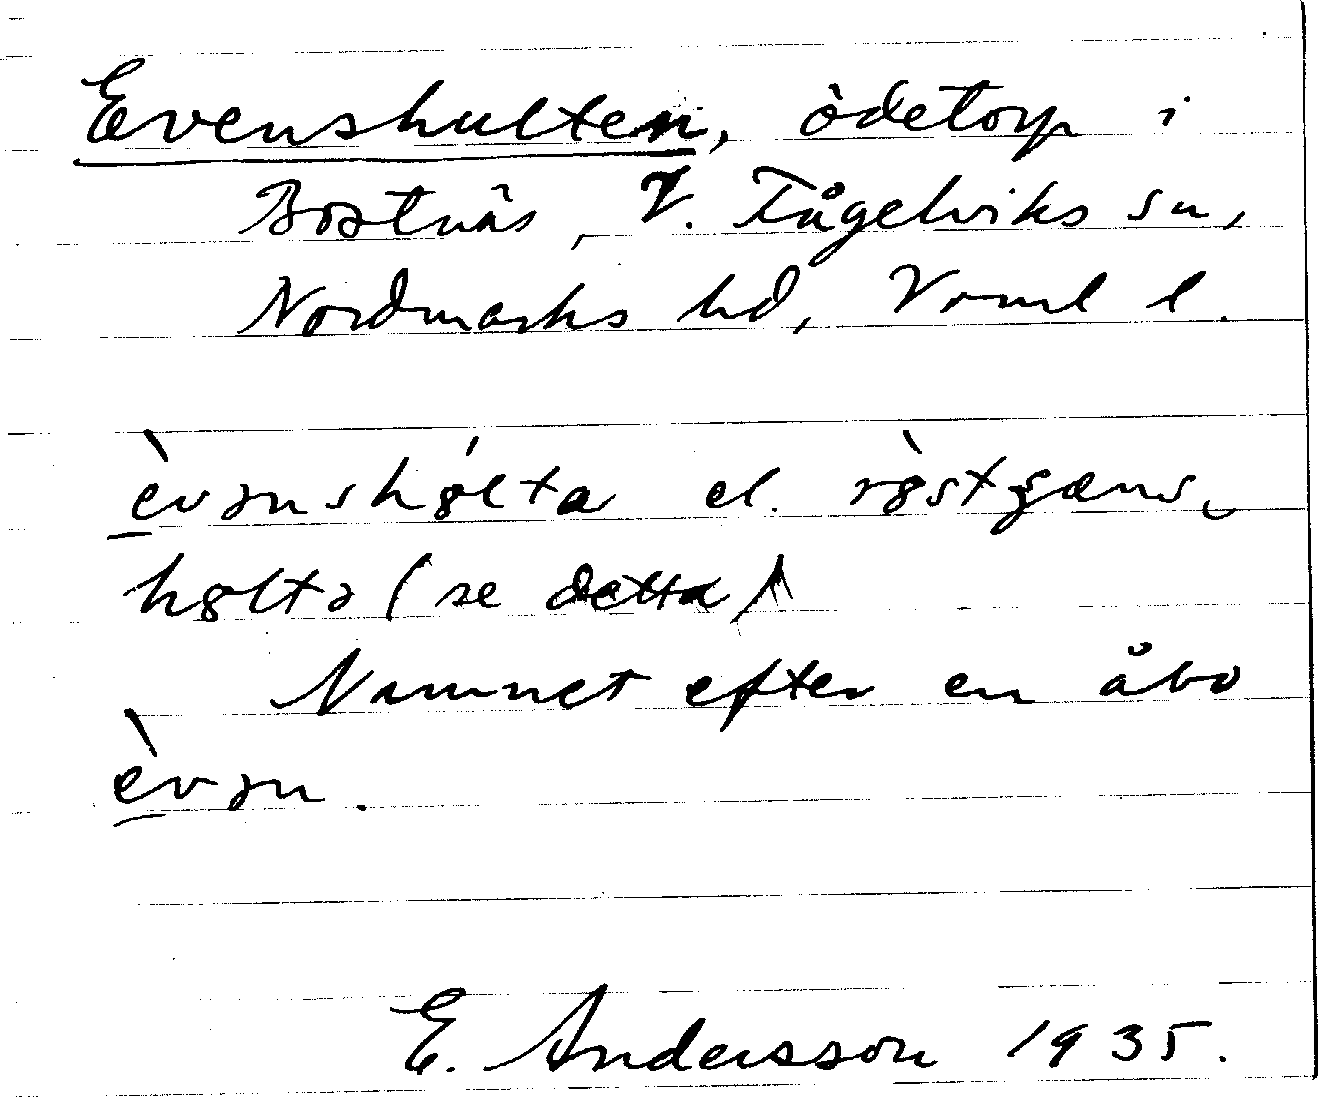 Evenshulten, ödetorp i
Bostnäs, V. Fågelviks sn,
Nordmarks hd, Vrml l.
èvənshɵ́lta el. rɵ̀stgæns-
hɵltə (se detta)
Namnet efter en åbo
èvən.
E. Andersson 1935.